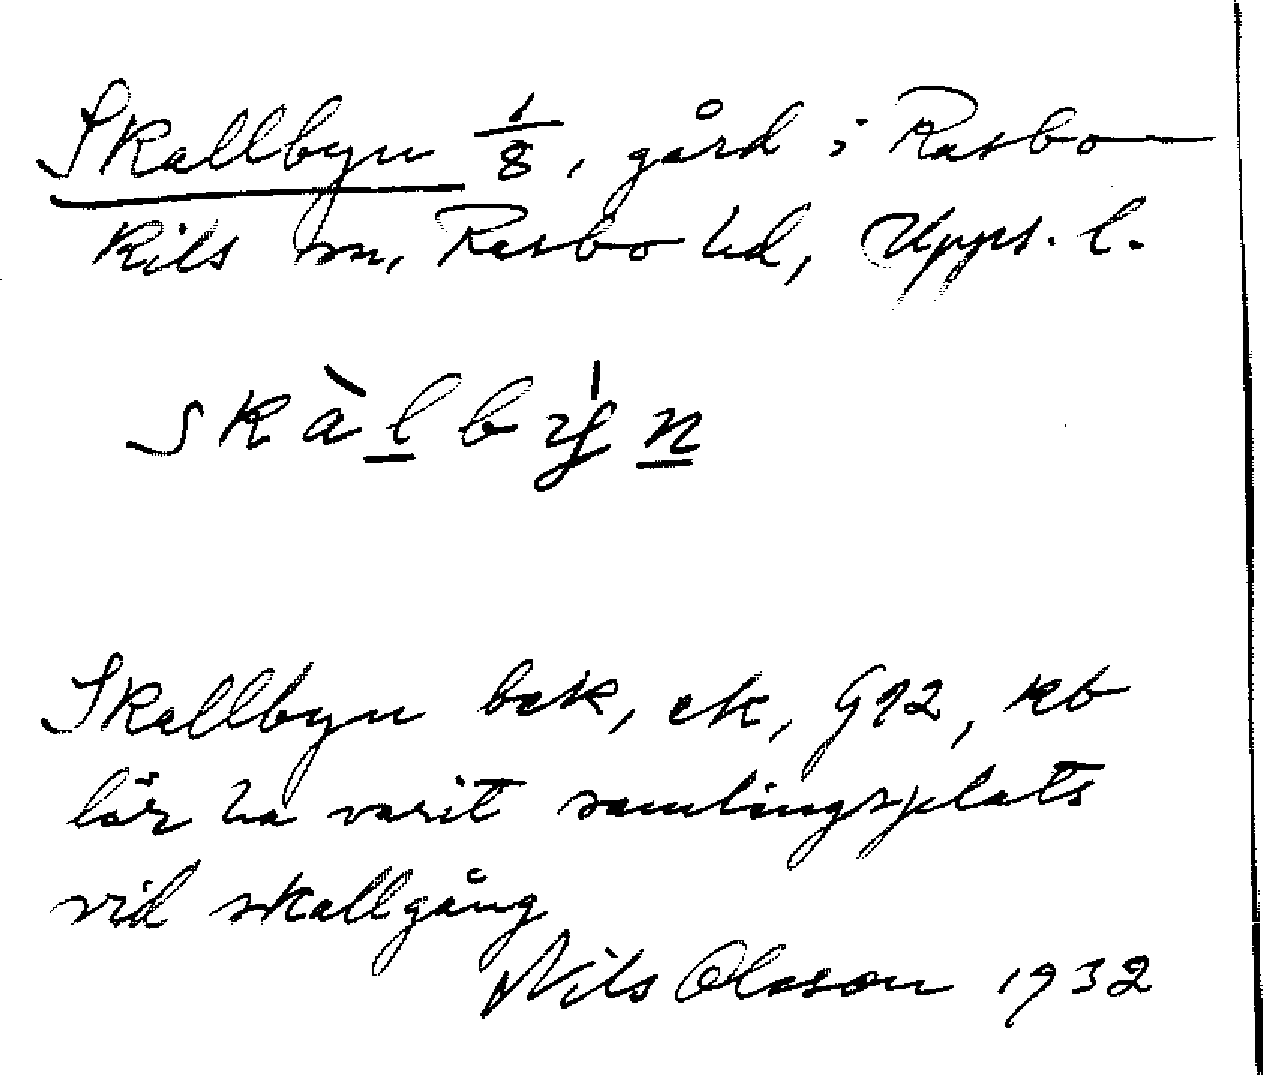 Skallbyn 1/8, gård i Rasbo-
Kils sn, Rasbo hd, Upps. l.
skàlbýn
Skallbyn bek, ek, G92, kb
lär ha varit samlingsplats
vid skallgång
Nils Olsson 1932